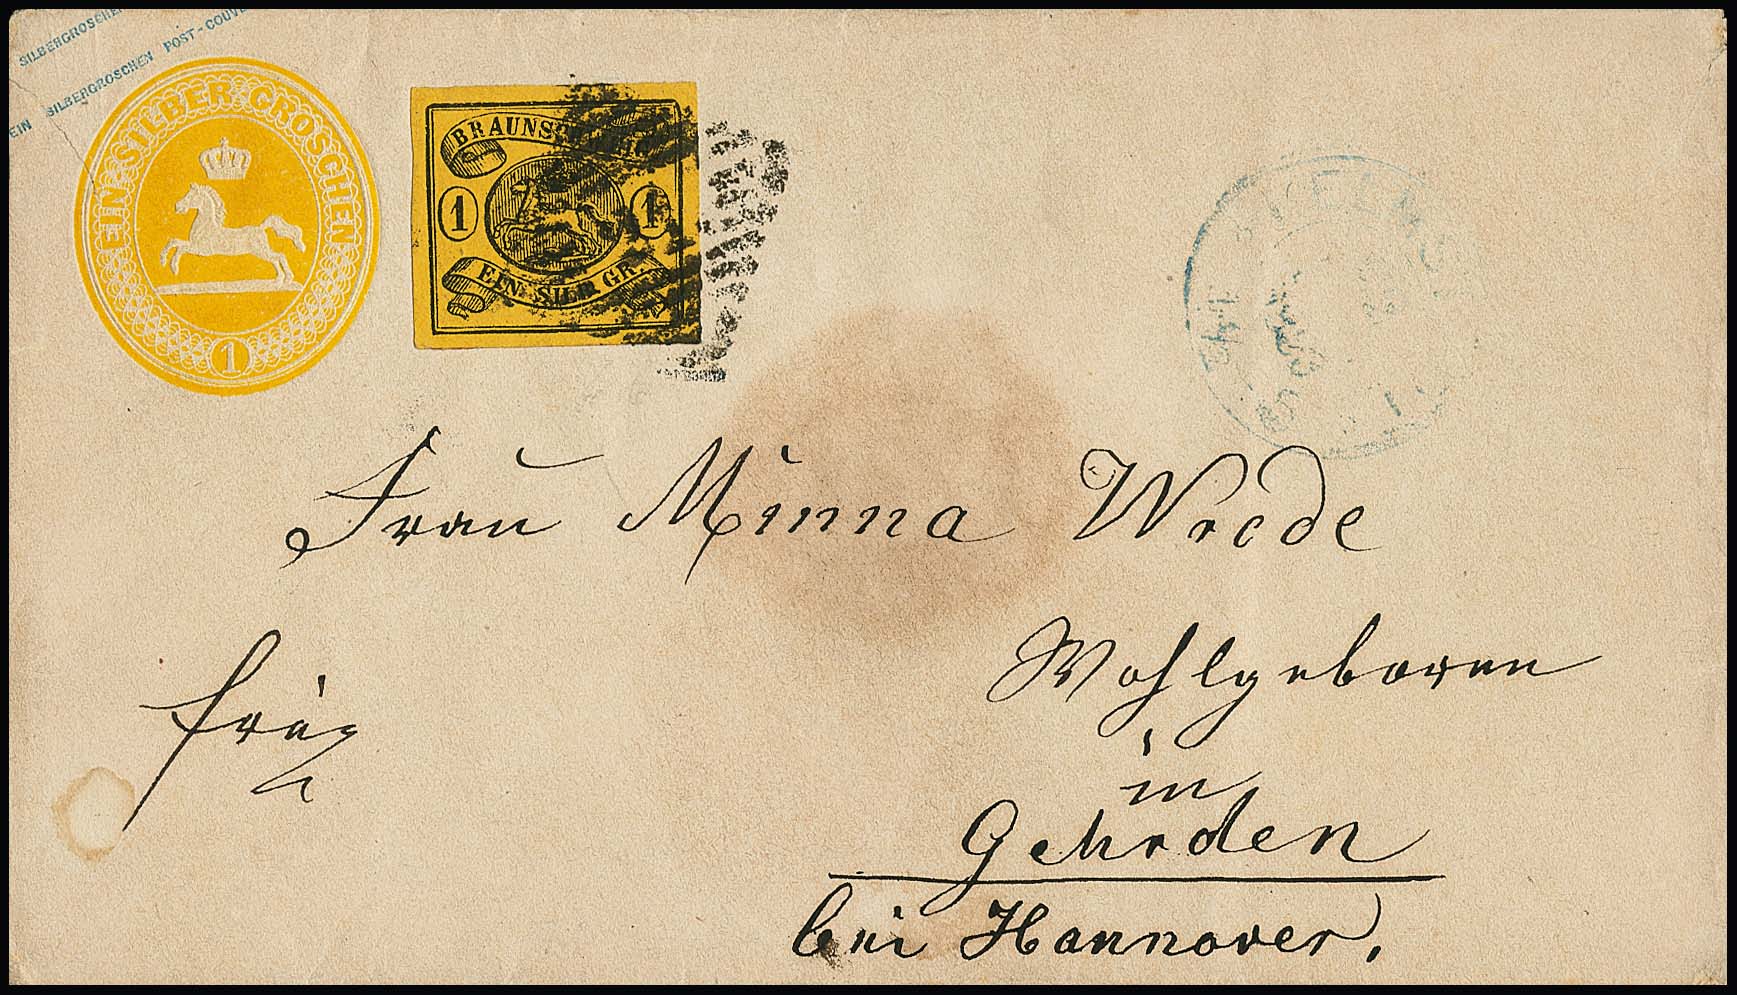 SILBERGROSCHEN
EIN SILBERGROSCHEN POST-COUVE
EIN SILBER GROSCHEN
1
BRAUNS
1 1
EIN SILB GR.
Frau Minna Wrede
Wohlgeboren
frei
in
Gehrden
bei Hannover.